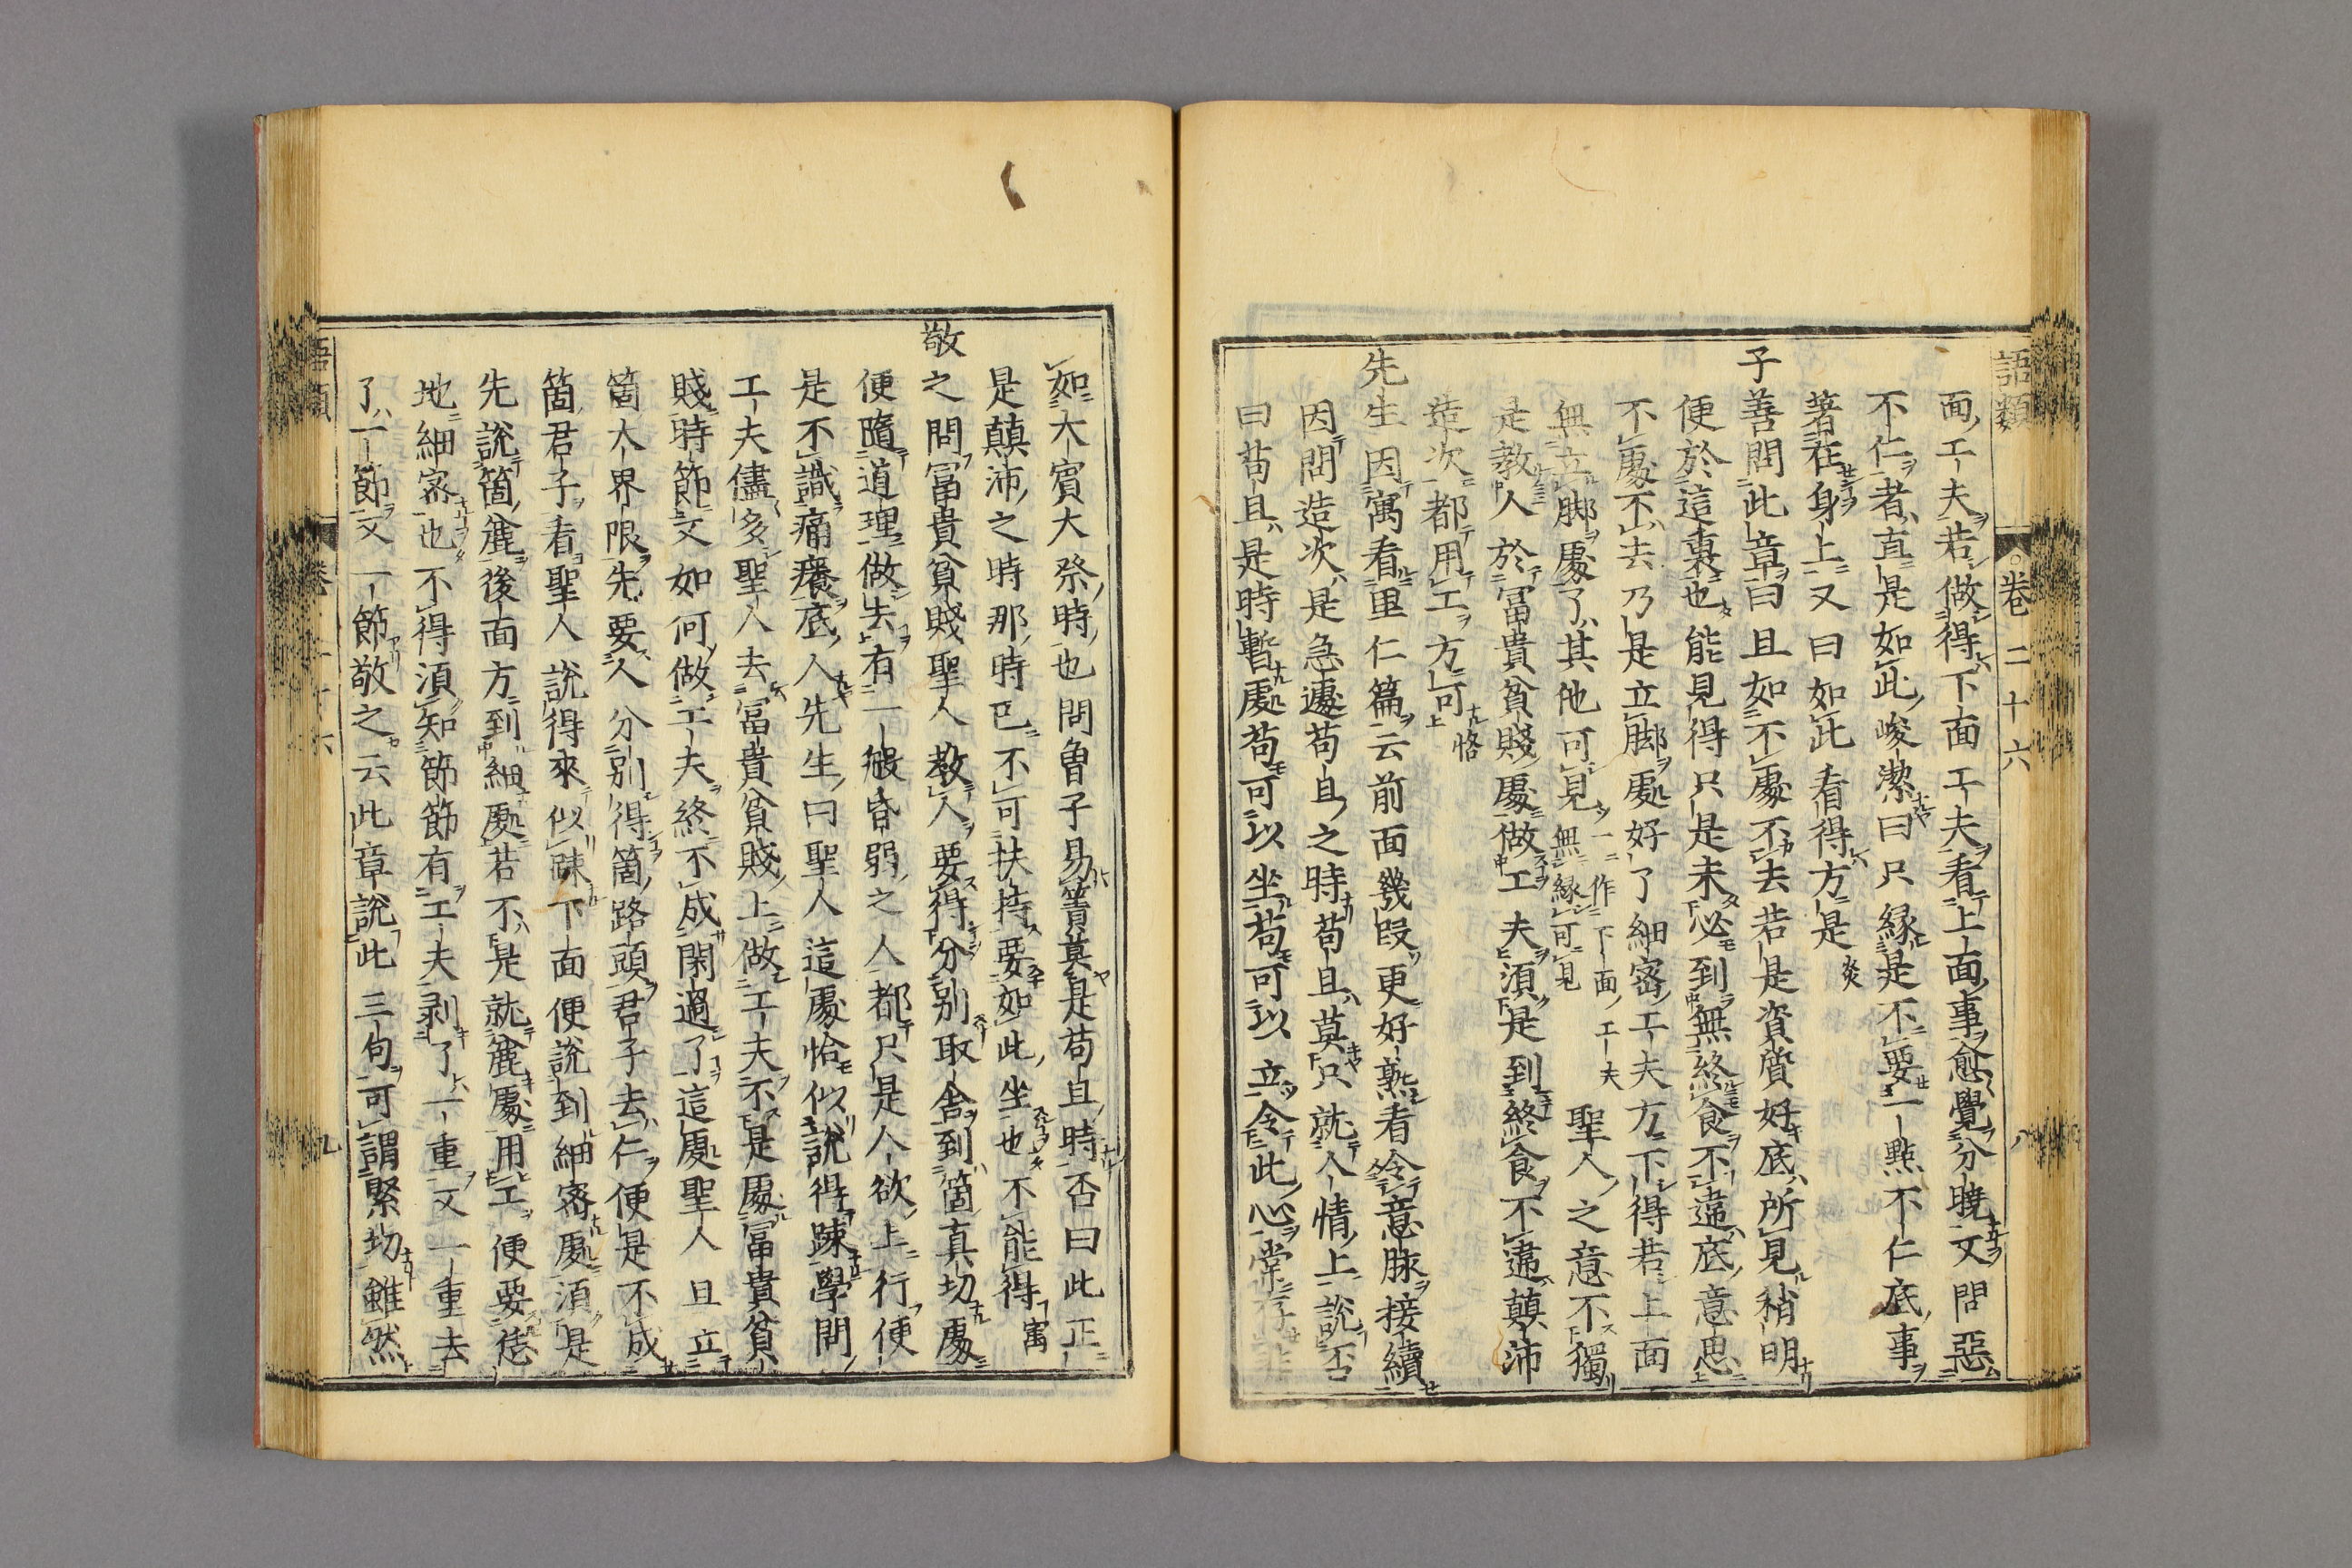 語類 卷二十六 八
面工夫若做得下面工夫看上面事愈覺分曉又問惡
不仁者直是如此峻潔曰只縁是不要一點不仁底事
著在身上又曰如此看得方是 炎
子善問此章曰且如不處不去若是資質好底所見稍明
便於這裏也能見得只是未必到無終食不違底意思
不處不去乃是立脚處好了細宻工夫方下得若上面
無立脚處了其他可見 一作下面工夫無縁可見 聖人之意不獨
是教人於富貴貧賤處做工夫須是到終食不違顛沛
造次都用工方可 恪
先生因寓看里仁篇云前面幾段更好熟看令意脉接續
因問造次是急遽苟且之時苟且莫只就人情上說否
曰苟且是時暫處苟可以坐苟可以立令此心常存非
如大賓大祭時也問曾子易簀莫是苟且時否曰此正
是顛沛之時那時已不可扶持要如此坐也不能得 寓
敬之問富貴貧賤聖人教人要得分别取舍到箇真切處
便隨道理做去有一般昏弱之人都只是人欲上行便
是不識痛癢底人先生曰聖人這處恰似說得踈學問
工夫儘多聖人去富貴貧賤上做工夫不是處富貴貧
賤時節又如何做工夫終不成閑過了這處聖人且立
箇大界限先要人分别得箇路頭君子去仁便是不成
箇君子看聖人說得來似踈下面便說到細宻處須是
先說箇麄後面方到細處若不是就麄處用工便要恁
地細宻也不得須知節節有工夫剥了一重又一重去
了一節又一節敬之云此章說此三句可謂緊切雖然
語類 卷二十六 九